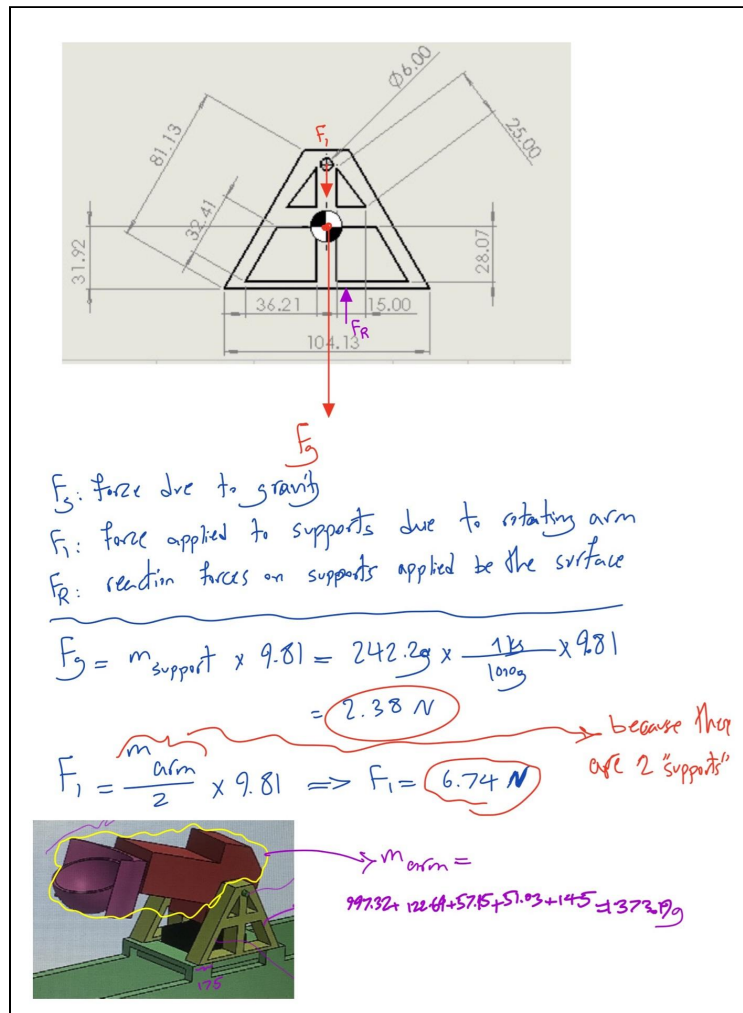 Ø6.00
81.13
F₁
25.00
32.41
31.92
28.07
36.21
15.00
F_R
104.13
Fg
Fg: force due to gravity
F₁: force applied to supports due to rotating arm
F_R: reaction forces on supports applied be the surface
Fg = m support × 9.81 = 242.2g × 1kg/1000g × 9.81
= 2.38 N
because there
are 2 "supports"
F₁ = m arm/2 × 9.81 => F₁ = 6.74 N
m arm =
997.32+122.69+57.15+51.03+145=1373.19g
175